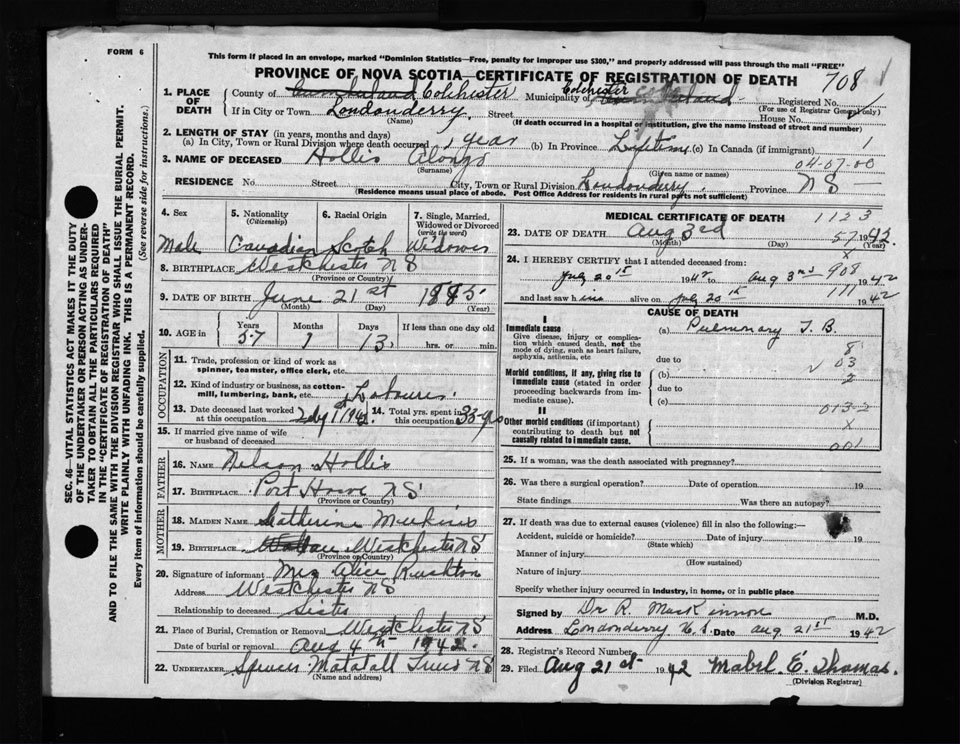 FORM 6
This form if placed in an envelope, marked "Dominion Statistics—Free, penalty for improper use $300," and properly addressed will pass through the mail "FREE"
PROVINCE OF NOVA SCOTIA—CERTIFICATE OF REGISTRATION OF DEATH
708
1. PLACE OF DEATH
County of Cumberland Colchester Municipality of Colchester Cumberland Registered No.
(For use of Registrar General only)
If in City or Town Londonderry Street House No.
(Name) (If death occurred in a hospital or institution, give the name instead of street and number)
2. LENGTH OF STAY (in years, months and days)
(a) In City, Town or Rural Division where death occurred 1 year (b) In Province Lifetime (c) In Canada (if immigrant) 1
3. NAME OF DECEASED Hollis Alonzo 04-07-00
(Surname) (Given name or names)
RESIDENCE No. Street City, Town or Rural Division Londonderry Province N S
(Residence means usual place of abode. Post Office Address for residents in rural parts not sufficient)
4. Sex
Male
5. Nationality
(Citizenship)
Canadian
6. Racial Origin
Scotch
7. Single, Married, Widowed or Divorced
(write the word)
Widower
8. BIRTHPLACE Westchester N S
(Province or Country)
9. DATE OF BIRTH June 21st 1885
(Month) (Day) (Year)
10. AGE in Years Months Days If less than one day old
57 1 13 hrs. or min.
OCCUPATION
11. Trade, profession or kind of work as spinner, teamster, office clerk, etc.
12. Kind of industry or business, as cotton-mill, lumbering, bank, etc. Labourer
13. Date deceased last worked at this occupation July 1 1942 14. Total yrs. spent in this occupation 35 yrs
15. If married give name of wife or husband of deceased
FATHER
16. NAME Nelson Hollis
17. BIRTHPLACE Port Howe N S
(Province or Country)
MOTHER
18. MAIDEN NAME Catherine
19. BIRTHPLACE Westchester N S
(Province or Country)
20. Signature of informant Mrs Alice Rushton
Address Westchester N S
Relationship to deceased Sister
21. Place of Burial, Cremation or Removal Westchester N S
Date of burial or removal Aug 4th 1942
22. UNDERTAKER Spencer Matatall N S
(Name and address)
MEDICAL CERTIFICATE OF DEATH
1123
23. DATE OF DEATH Aug 3rd 57 1942
(Month) (Day)
x
24. I HEREBY CERTIFY that I attended deceased from:
July 20th 1942 to Aug 3rd 908 1942
and last saw him alive on July 20th 111 1942
CAUSE OF DEATH
I
Immediate cause
Give disease, injury or complication which caused death, not the mode of dying, such as heart failure, asphyxia, asthenia, etc
(a) Pulmonary T. B.
8
due to 03
Morbid conditions, if any, giving rise to immediate cause (stated in order proceeding backwards from immediate).
(b) 2
due to
(c) 013-2
II
Other morbid conditions (if important) contributing to death but not causally related to immediate cause.
x
001
25. If a woman, was the death associated with pregnancy?
26. Was there a surgical operation? Date of operation 19
State findings Was there an autopsy?
27. If death was due to external causes (violence) fill in also the following:—
Accident, suicide or homicide? Date of injury 19
(State which)
Manner of injury
(How sustained)
Nature of injury
Specify whether injury occurred in industry, in home, or in public place
Signed by Dr R. MacKinnon M.D.
Address Londonderry N.S. Date Aug 21st 1942
28. Registrar's Record Number
29. Filed Aug 21st 1942 Mabel E. Thomas
(Division Registrar)
SEC. 46—VITAL STATISTICS ACT MAKES IT THE DUTY OF THE UNDERTAKER OR PERSON ACTING AS UNDERTAKER TO OBTAIN ALL THE PARTICULARS REQUIRED IN THE "CERTIFICATE OF REGISTRATION OF DEATH" AND TO FILE THE SAME WITH THE DIVISION REGISTRAR WHO SHALL ISSUE THE BURIAL PERMIT.
WRITE PLAINLY WITH UNFADING INK. THIS IS A PERMANENT RECORD.
Every item of information should be carefully supplied. (See reverse side for instructions.)